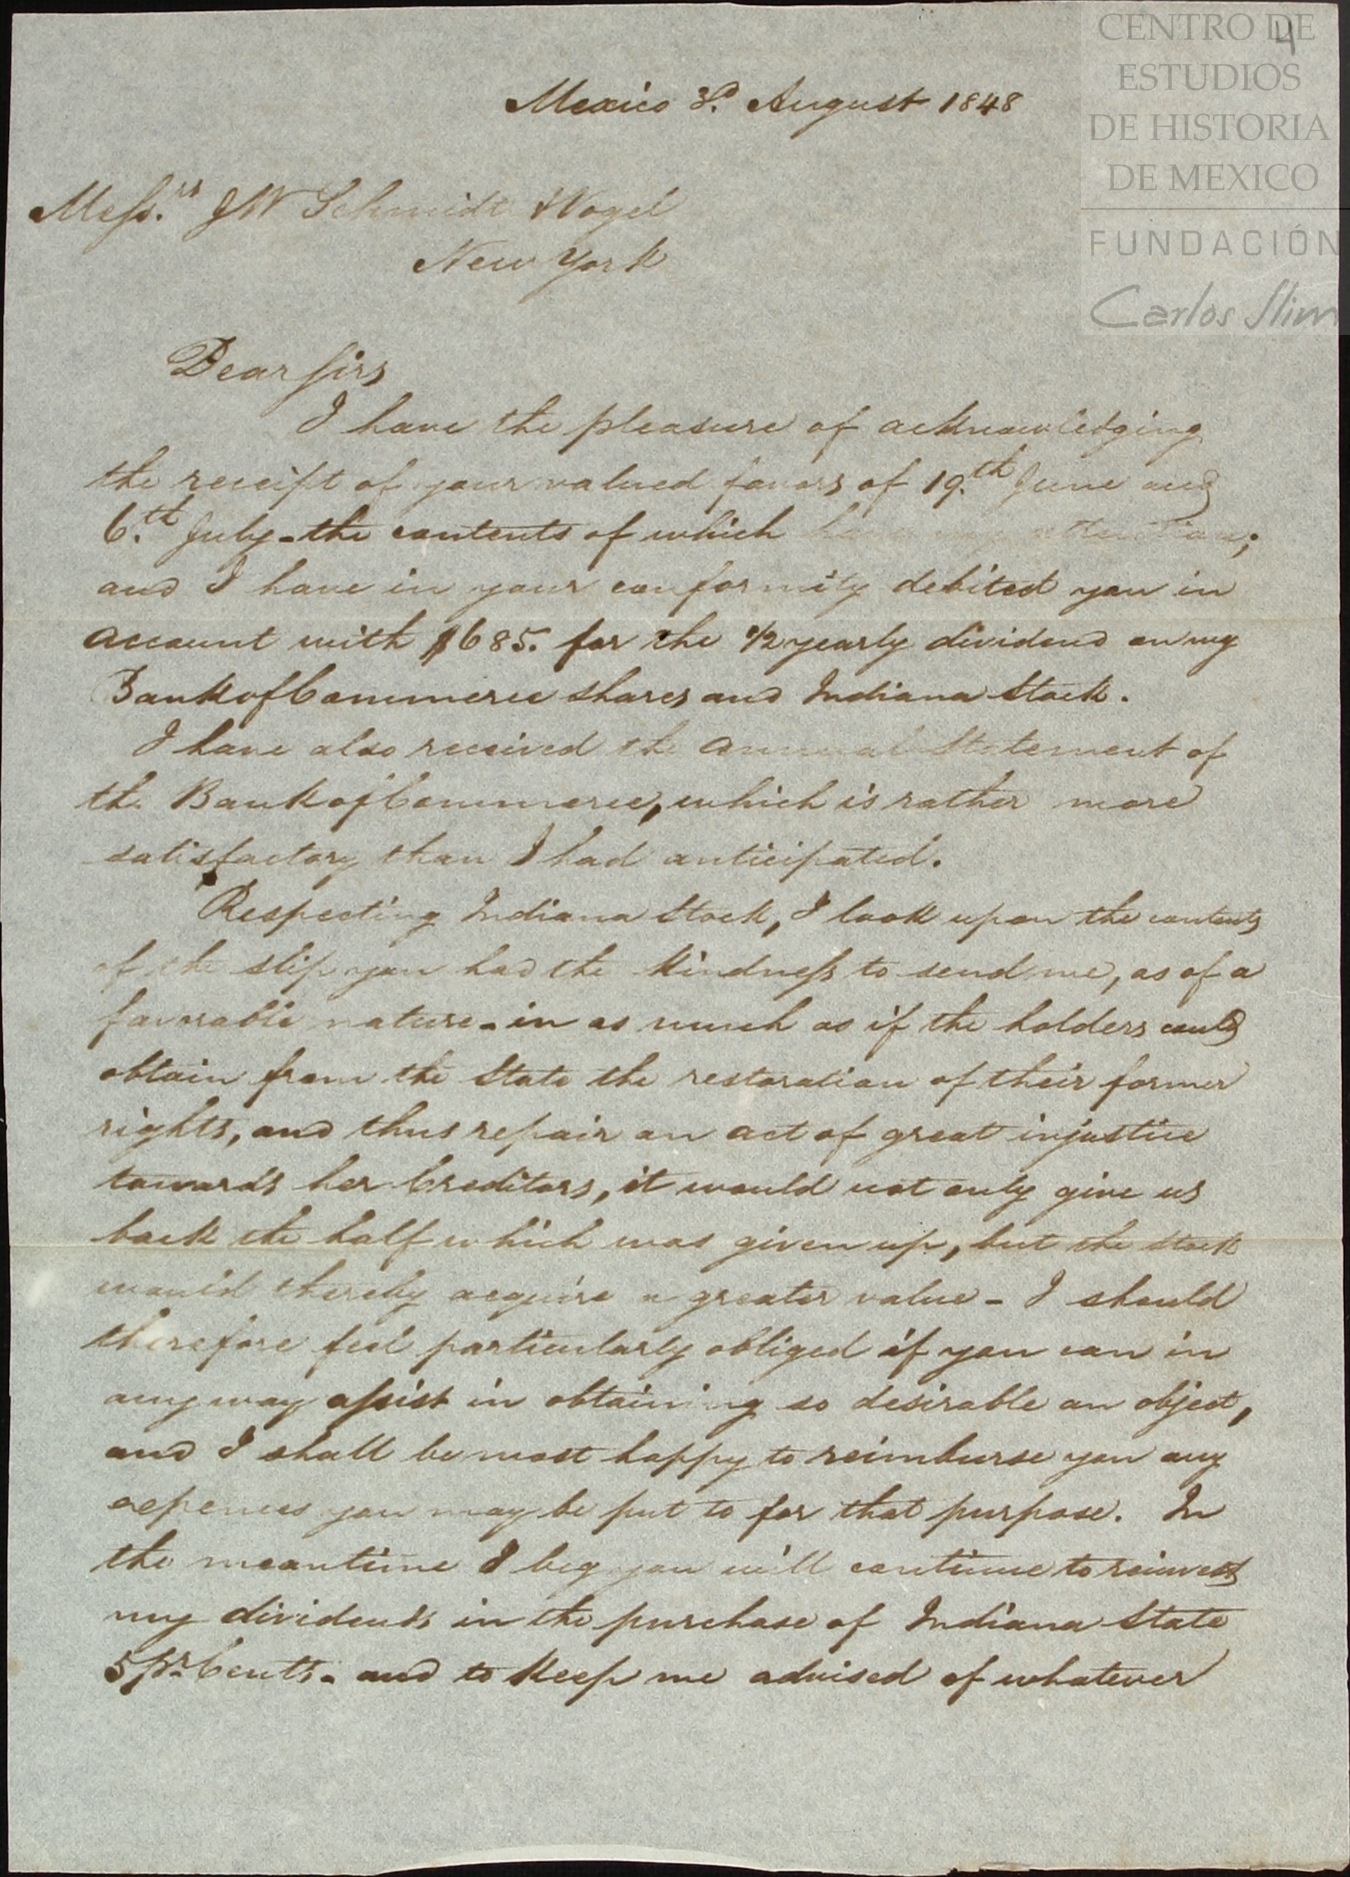 4
CENTRO DE
ESTUDIOS
DE HISTORIA
DE MEXICO
FUNDACIÓN
Carlos Slim
Mexico 3.d August 1848
Messrs. JW Schmidt &
New York
Dear sirs
I have the pleasure of acknowledging
the receipt of your valued favors of 19.th June and
6.th July - the contents of which have my attention;
and I have in your conformity debited you in
account with $685. for the 1/2 yearly dividend on my
Bank of Commerce shares and Indiana Stock.
I have also received the annual Statement of
the Bank of Commerce, which is rather more
satisfactory than I had anticipated.
Respecting Indiana Stock, I look upon the contents
of the slip you had the kindness to send me, as of a
favorable nature - in as much as if the holders could
obtain from the State the restoration of their former
rights, and thus repair an act of great injustice
towards her Creditors, it would not only give us
back the half which was given up, but the stock
would thereby acquire a greater value - I should
therefore feel particularly obliged if you can in
any way assist in obtaining so desirable an object,
and I shall be most happy to reimburse you any
expences you may be put to for that purpose. In
the meantime I beg you will continue to reinvest
my dividends in the purchase of Indiana State
5 pr. Cents. - and to keep me advised of whatever